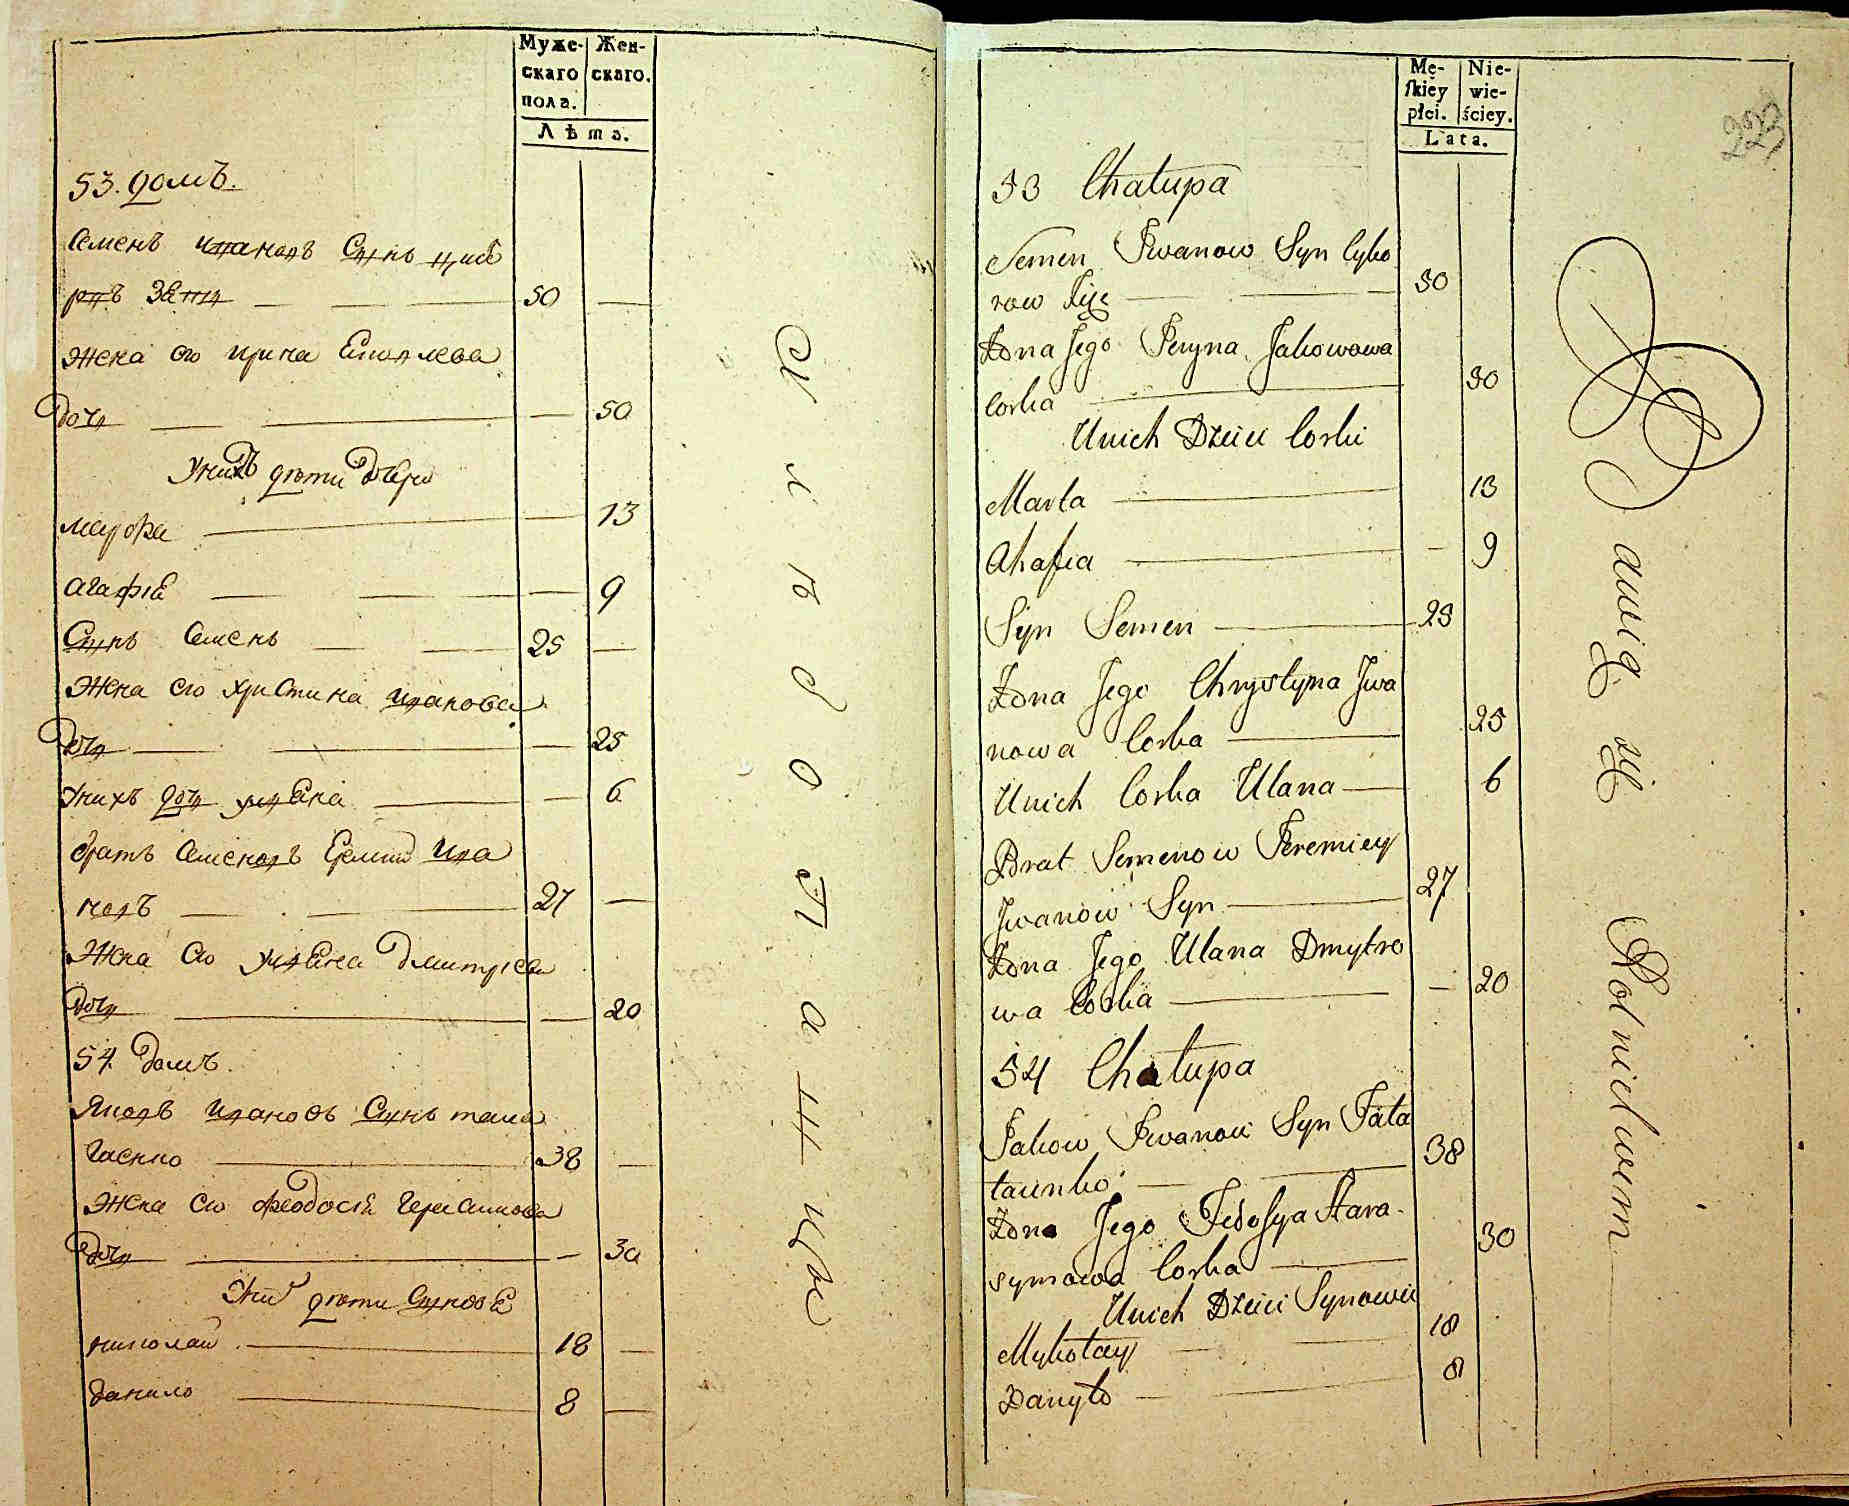 Муже-
скаго
пола.
Жен-
скаго.
Лѣта.
53. домъ.
Семенъ Ивановъ Сынъ циб
ровъ Зять 50
Жена его Ирина Яковлева
дочь 50
У нихъ дѣти дочери
марфа 13
агафіа 9
Сынъ Семенъ 25
Жена его христина Иванова
дочь 25
У нихъ дочь улѣяна 6
братъ Семеновъ Еремій Ива
новъ 27
Жена его улѣяна дмитріева
дочь 20
54. домъ.
Яковъ Ивановъ Сынъ тата
38
Жена его феодосіа Герасимова
дочь 30
У них дѣти Сыновѣ
николай 18
данило 8
хлѣбопашцы
223
Mę-
skiey
płci.
Nie-
wie-
ściey.
Lata.
53 Chałupa
Semen Iwanow Syn Cybo
row 50
Żona Jego Jeryna Jakowowa
Corka 50
Unich Dzieci Corki
Marta 13
Ahafia 9
Syn Semen 25
Żona Jego Chrystyna Jwa
nowa Corka 25
Unich Corka Ulana 6
Brat Semenow Jeremiey
Jwanow Syn 27
Żona Jego Ulana Dmytro
wa Corka 20
54 Chałupa
Jakow Iwanow Syn Tata
runko 38
Żona Jego Fedosya Hara
symowa Corka 30
Unich Dzieci Synowie
Mykołay 18
Danyło 8
Bawią się Rolnictwem